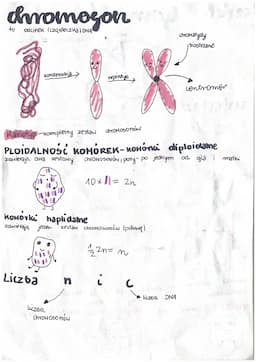 chromosom
to odcinek (cząsteczka) DNA
chromatydy
siostrzane
kondensacja
replikacja
centromer
kompletny zestaw chromosomów
PLOIDALNOŚĆ KOMÓREK - komórki diploidalne
zawierają dwa zestawy chromosomów, pary - po jednym od ojca i matki
10 x = 2n
komórki haploidalne
zawierają jeden zestaw chromosomów (połowę)
½ 2n = n
Liczba n i c
liczba
chromosomów
liczba DNA